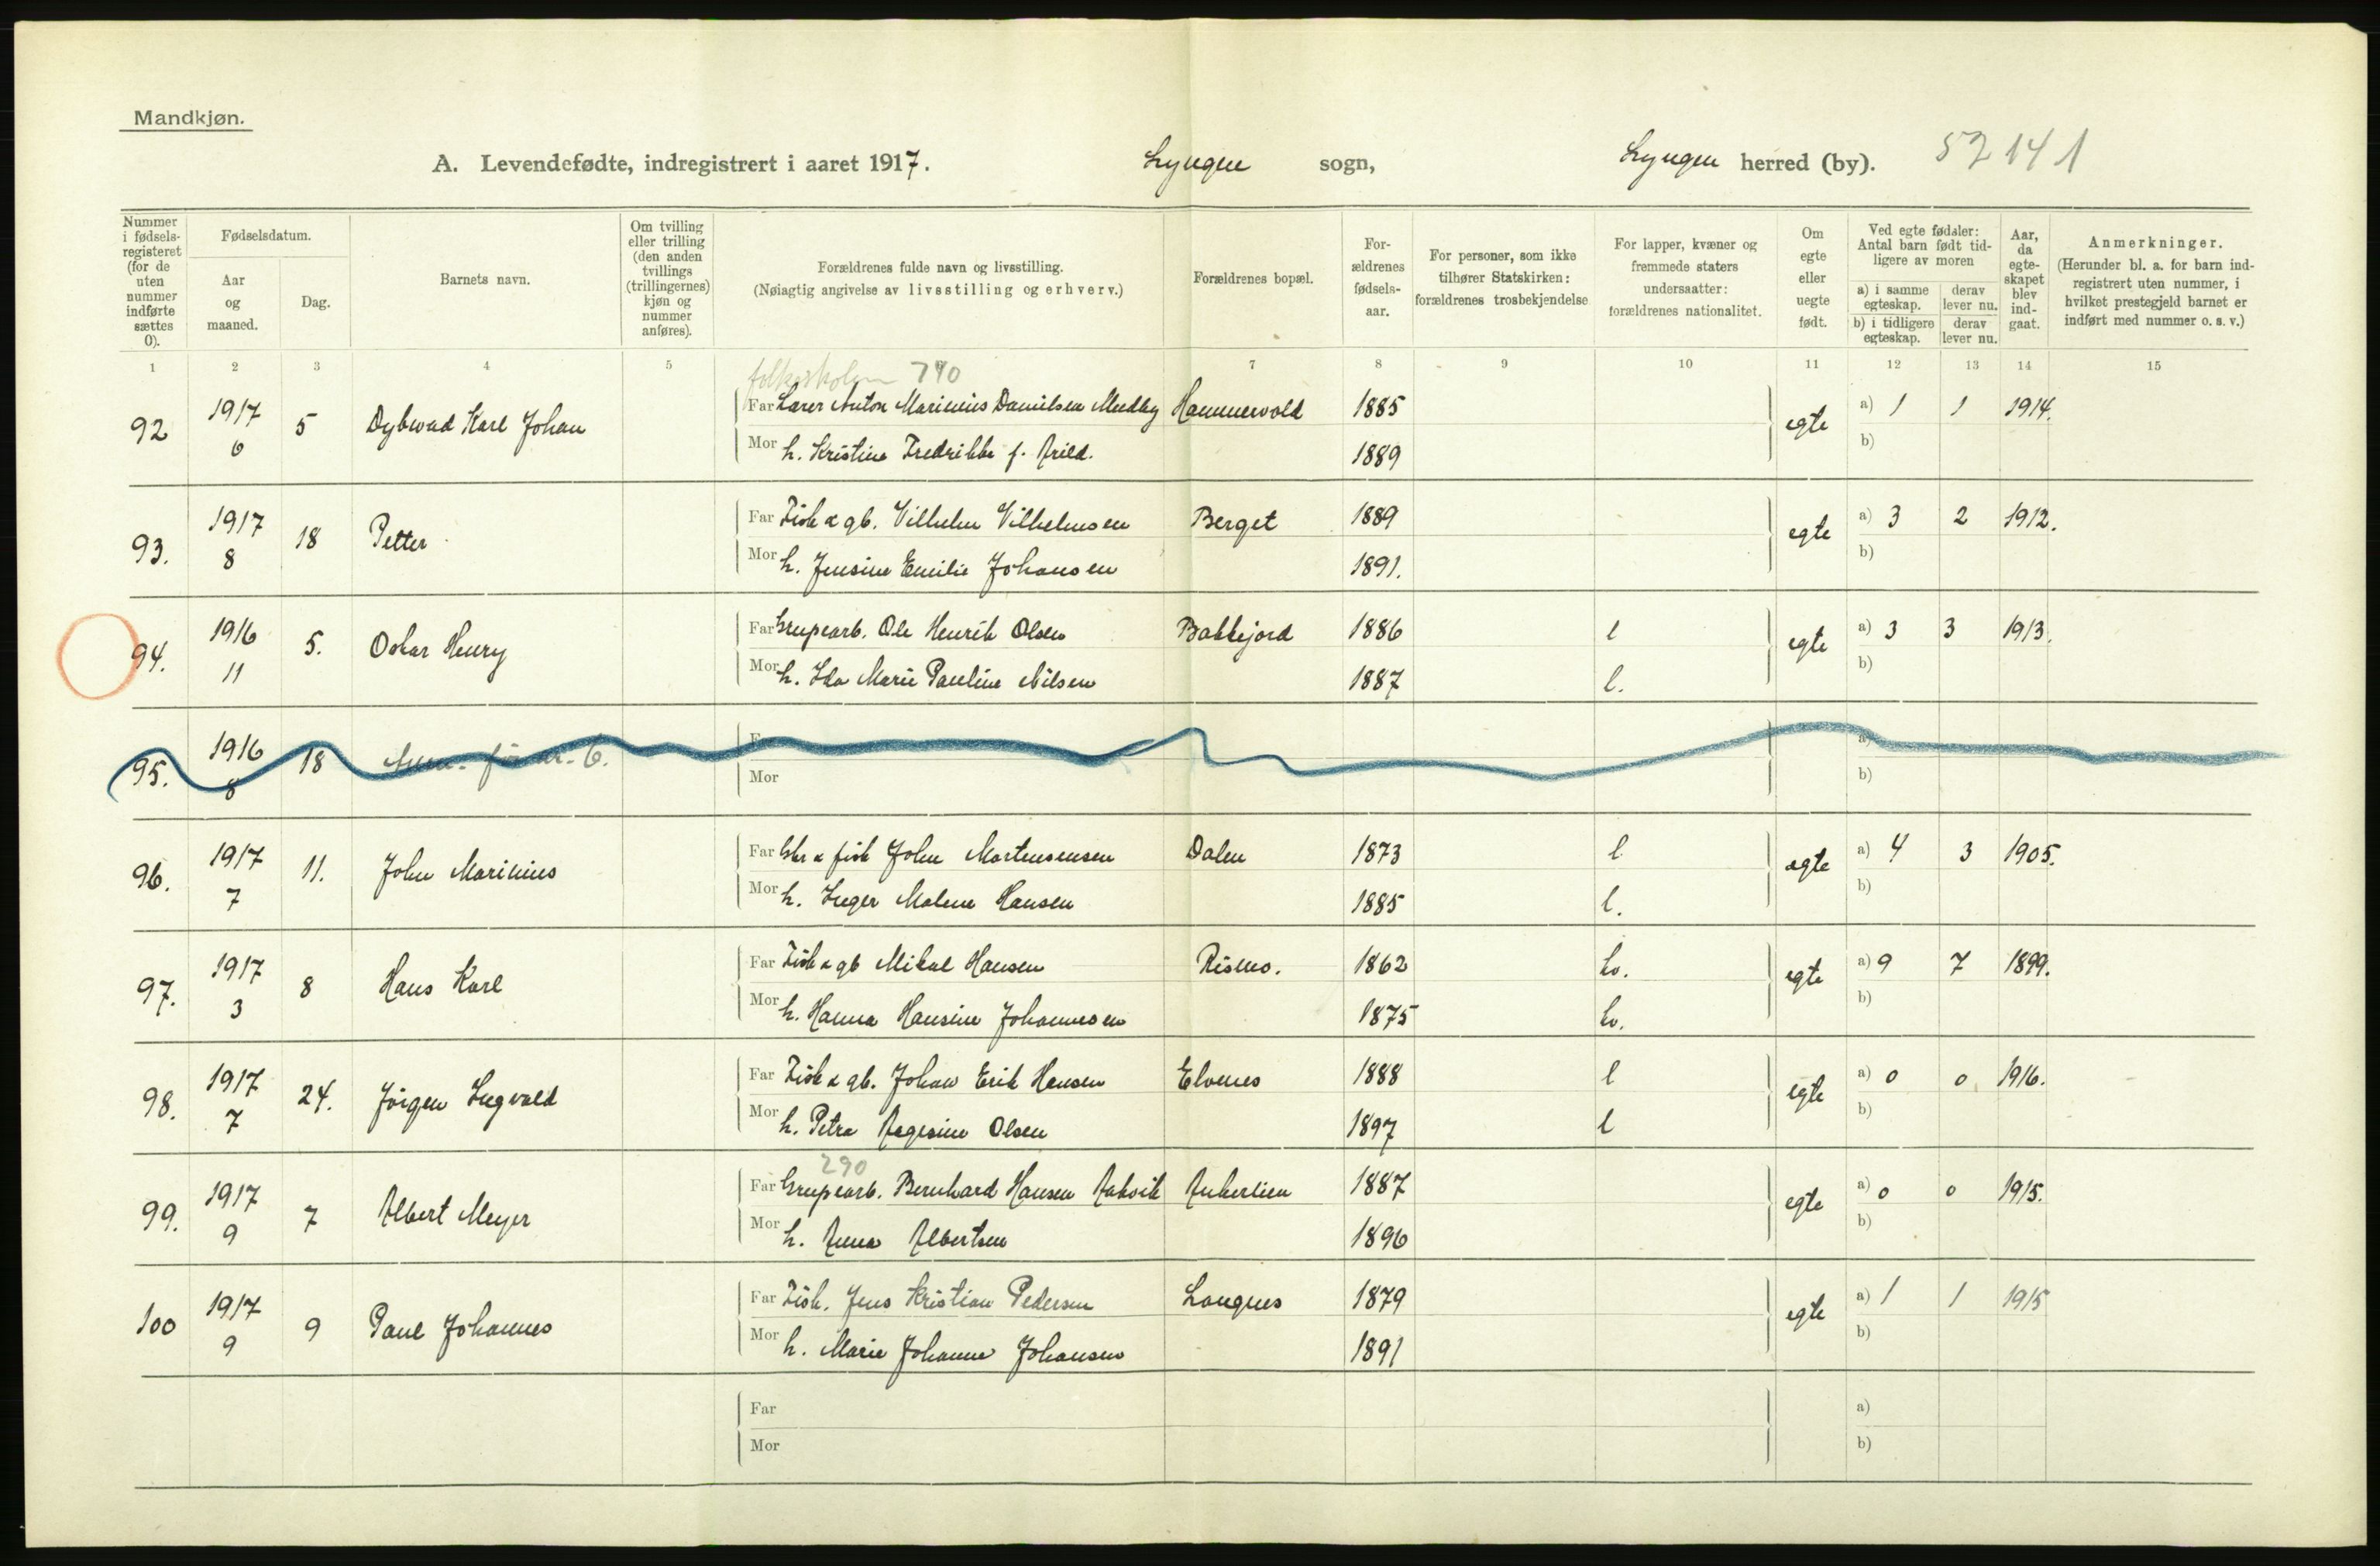 Mandkjøn.
A. Levendefødte, indregistrert i aaret 1917. Lyngen sogn, Lyngen herred (by). 52 141
Nummer i fødsels-registeret (for de uten nummer indførte sættes 0).
Fødselsdatum.
Aar og maaned.
Dag.
Barnets navn.
Om tvilling eller trilling (den anden tvillings (trillingernes) kjøn og nummer anføres).
Forældrenes fulde navn og livsstilling.
(Nøiagtig angivelse av livsstilling og erhverv.)
Forældrenes bopæl.
For-ældrenes fødsels-aar.
For personer, som ikke tilhører Statskirken: forældrenes trosbekjendelse
For lapper, kvæner og fremmede staters undersaatter: forældrenes nationalitet.
Om egte eller uegte født.
Ved egte fødsler: Antal barn født tid-ligere av moren
a) i samme egteskap. derav lever nu.
b) i tidligere egteskap. derav lever nu.
Aar, da egte-skapet blev ind-gaat.
Anmerkninger.
(Herunder bl. a. for barn ind-registrert uten nummer, i hvilket prestegjeld barnet er indført med nummer o. s. v.)
1 2 3 4 5 7 8 9 10 11 12 13 14 15
folkeskolen 790
92 1917 6 5 Dybwad Karl Johan Far Lærer Anton Marinius Danielsen Medby Hammervold 1885 egte a) 1 1 1914.
Mor h. Kristine Fredrikke f. Arild. 1889 b)
93. 1917 8 18 Petter Far Fisk & gb. Vilhelm Vilhelmsen Berget 1889 egte a) 3 2 1912.
Mor h. Jensine Emilie Johansen 1891. b)
94. 1916 11 5. Oskar Henry Far Grupearb. Ole Henrik Olsen Bakkejord 1886 l egte a) 3 3 1913.
Mor h. Ida Marie Pauline Nilsen 1887 l. b)
95. 1916 8 18 a)
Mor b)
96. 1917 7 11. John Marinius Far Gbr & fisk John Mortensensen Dalen 1873 l egte a) 4 3 1905.
Mor h. Inger Malene Hansen 1885 l. b)
97. 1917 3 8 Hans Karl Far Fisk & gb Mikal Hansen Rismo. 1862 kv. egte a) 9 7 1899.
Mor h. Hanna Hansine Johannesen 1875 kv. b)
98. 1917 7 24. Jörgen Ingvald Far Fisk & gb. Johan Erik Hansen Elvenes 1888 l egte a) 0 0 1916.
Mor h. Petra Aagesine Olsen 1897 l b)
290
99. 1917 9 7 Albert Meyer Far Grupearb. Bernhard Hansen Rakvik Ankerlien 1887 egte a) 0 0 1915.
Mor h. Anna Albertsen 1896 b)
100 1917 9 9 Paul Johannes Far Fisk. Jens Kristian Pedersen Langnes 1879 egte a) 1 1 1915
Mor h. Marie Johanne Johansen 1891 b)
Far a)
Mor b)